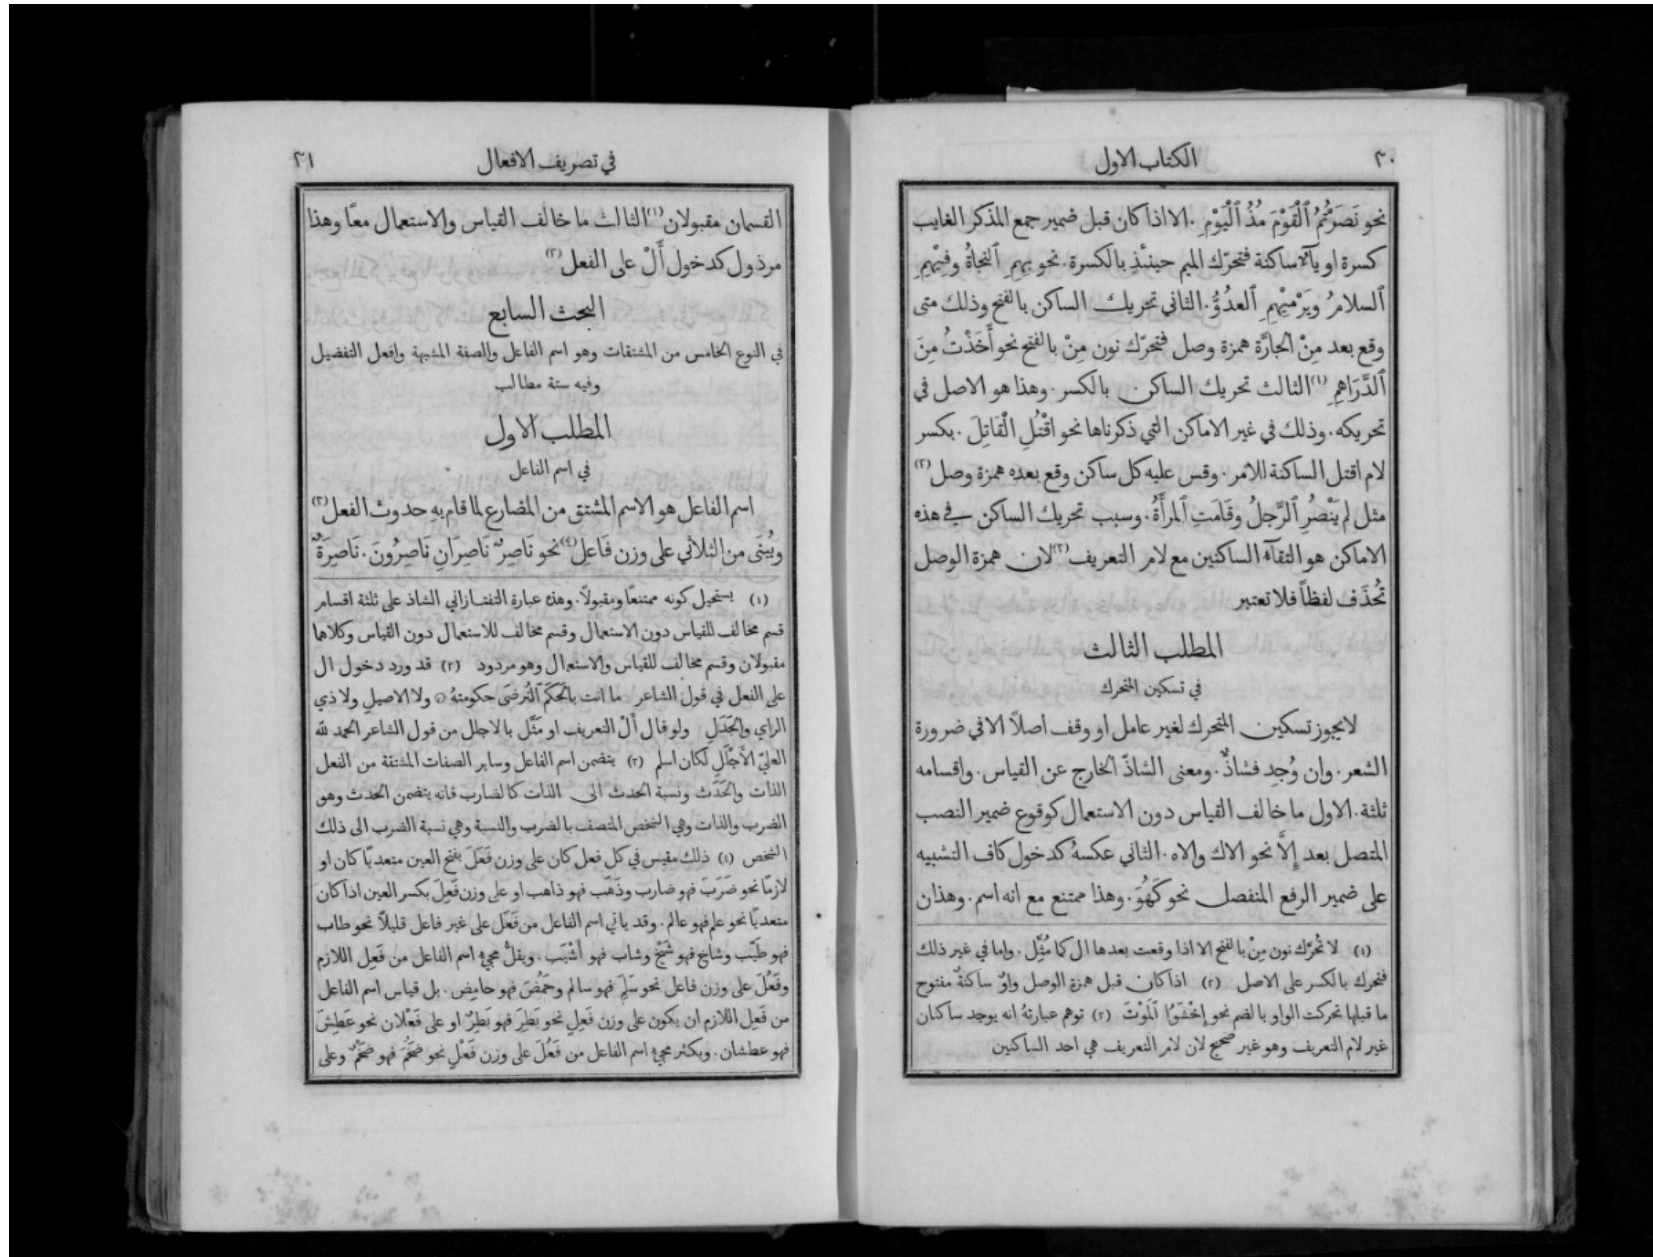 ٣٠
الكتاب الاول
نحو نَصَرْتُمُ ٱلْقَوْمَ مُذُ ٱلْيَوْمِ. الا اذا كان قبل ضمير جمع المذكر الغايب
كسرة او يآء ساكنة فتحرّك الميم حينئذٍ بالكسرة. نحو بِهِمِ ٱلنجاةُ وفِيْهِمِ
ٱلسلامُ ويَرْمِيْهِمِ ٱلعدُوُّ. الثاني تحريك الساكن بالفتح وذلك متى
وقع بعد مِنْ الجارّة همزة وصل فتحرّك نون مِنْ بالفتح نحو أَخَذْتُ مِنَ
ٱلدَّرَاهِمِ (١) الثالث تحريك الساكن بالكسر. وهذا هو الاصل في
تحريكه. وذلك في غير الاماكن التي ذكرناها نحو اقْتُلِ الْقَاتِلَ. بكسر
لام اقتل الساكنة للامر. وقس عليه كل ساكن وقع بعده همزة وصل (٢)
مثل لم يَنْصُرِ ٱلرَّجلُ وقَامَتِ ٱلمرأَةُ. وسبب تحريك الساكن في هذه
الاماكن هو التقآء الساكنين مع لام التعريف (٣) لان همزة الوصل
تُحذَف لفظاً فلا تعتبر
المطلب الثالث
في تسكين المتحرك
لا يجوز تسكين المتحرك لغير عامل او وقف اصلاً الا في ضرورة
الشعر. وان وُجِد فشاذٌ. ومعنى الشاذّ الخارج عن القياس. واقسامه
ثلثة. الاول ما خالف القياس دون الاستعمال كوقوع ضمير النصب
المتصل بعد إِلاَّ نحو الاك والاه. الثاني عكسهُ كدخول كاف التشبيه
على ضمير الرفع المنفصل نحو كَهُوَ. وهذا ممتنع مع انه اسم. وهذان
(١) لا تُحرَّك نون مِنْ بالفتح الا اذا وقعت بعدها ال كما مُثِّل. واما في غير ذلك
فتحرك بالكسر على الاصل (٢) اذا كان قبل همزة الوصل واوٌ ساكنةٌ مفتوح
ما قبلها تحركت الواو بالضم نحو إِخْشَوُا ٱلمَوْتَ (٣) توهم عبارتهُ انه يوجد ساكنان
غير لام التعريف وهو غير صحيح لان لام التعريف هي احد الساكنين
في تصريف الافعال
٣١
القسمان مقبولان (١) الثالث ما خالف القياس والاستعمال معًا وهذا
مرذول كدخول أَلْ على الفعل (٢)
البحث السابع
في النوع الخامس من المشتقات وهو اسم الفاعل والصفة المشبهة وافعل التفضيل
وفيه ستة مطالب
المطلب الاول
في اسم الفاعل
اسم الفاعل هو الاسم المشتق من المضارع لما قام بهِ حدوث الفعل (٣)
ويُبنَى من الثلاثي على وزن فَاعِل (٤) نحو نَاصِرٌ نَاصِرَانِ نَاصِرُونَ. نَاصِرَةٌ
(١) يستحيل كونه ممتنعًا ومقبولًا. وهذه عبارة التفتازاني الشاذ على ثلثة اقسام
قسم مخالف للقياس دون الاستعمال وقسم مخالف للاستعمال دون القياس وكلاهما
مقبولان وقسم مخالف للقياس والاستعمال وهو مردود (٢) قد ورد دخول ال
على الفعل في قول الشاعر ما انت بالحَكَمِ ٱلتُرضَى حكومتهُ ولا الاصيلِ ولا ذي
الراي والجَدَلِ ولو قال أَلْ التعريف او مَثَّل بالاجلل من قول الشاعر الحمد لله
العليّ الأَجْلَلِ لكان اسلم (٣) يتضمن اسم الفاعل وساير الصفات المشتقة من الفعل
الذات والحَدَث ونسبة الحدث الى الذات كالضارب فانه يتضمن الحدث وهو
الضرب والذات وهي الشخص المتصف بالضرب والنسبة وهي نسبة الضرب الى ذلك
الشخص (٤) ذلك مقيس في كل فعل كان على وزن فَعَلَ بفتح العين متعديًا كان او
لازمًا نحو ضَرَبَ فهو ضارب وذَهَبَ فهو ذاهب او على وزن فَعِلَ بكسر العين اذا كان
متعديًا نحو علم فهو عالم. وقد ياتي اسم الفاعل من فَعَلَ على غير فاعل قليلاً نحو طاب
فهو طَيّب وشاخ فهو شَيْخ وشاب فهو أَشْيَب. ويقلُّ مجيء اسم الفاعل من فَعِل اللازم
وفَعُلَ على وزن فاعل نحو سَلِمَ فهو سالم وحَمُضَ فهو حامِض. بل قياس اسم الفاعل
من فَعِل اللازم ان يكون على وزن فَعِلٍ نحو بَطِرَ فهو بَطِرٌ او على فَعْلان نحو عَطِشَ
فهو عطشان. ويكثر مجيء اسم الفاعل من فَعُلَ على وزن فَعْلٍ نحو ضَخُمَ فهو ضَخْمٌ وعلى